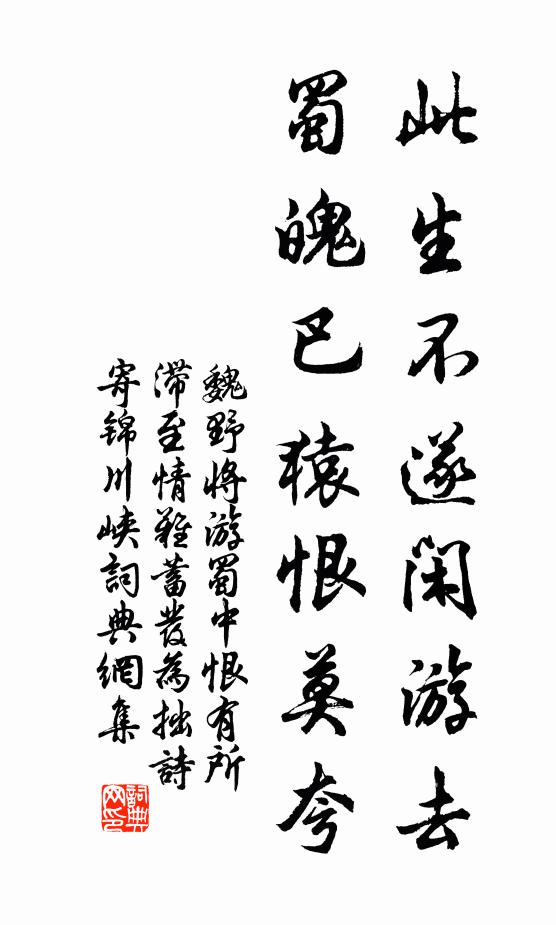 此生不遂闲游去
蜀魄巴猿恨莫夸
魏野将游蜀中恨有所
滞至情難蓄發為拙詩
寄锦川峡詞典網集
詞典
网印